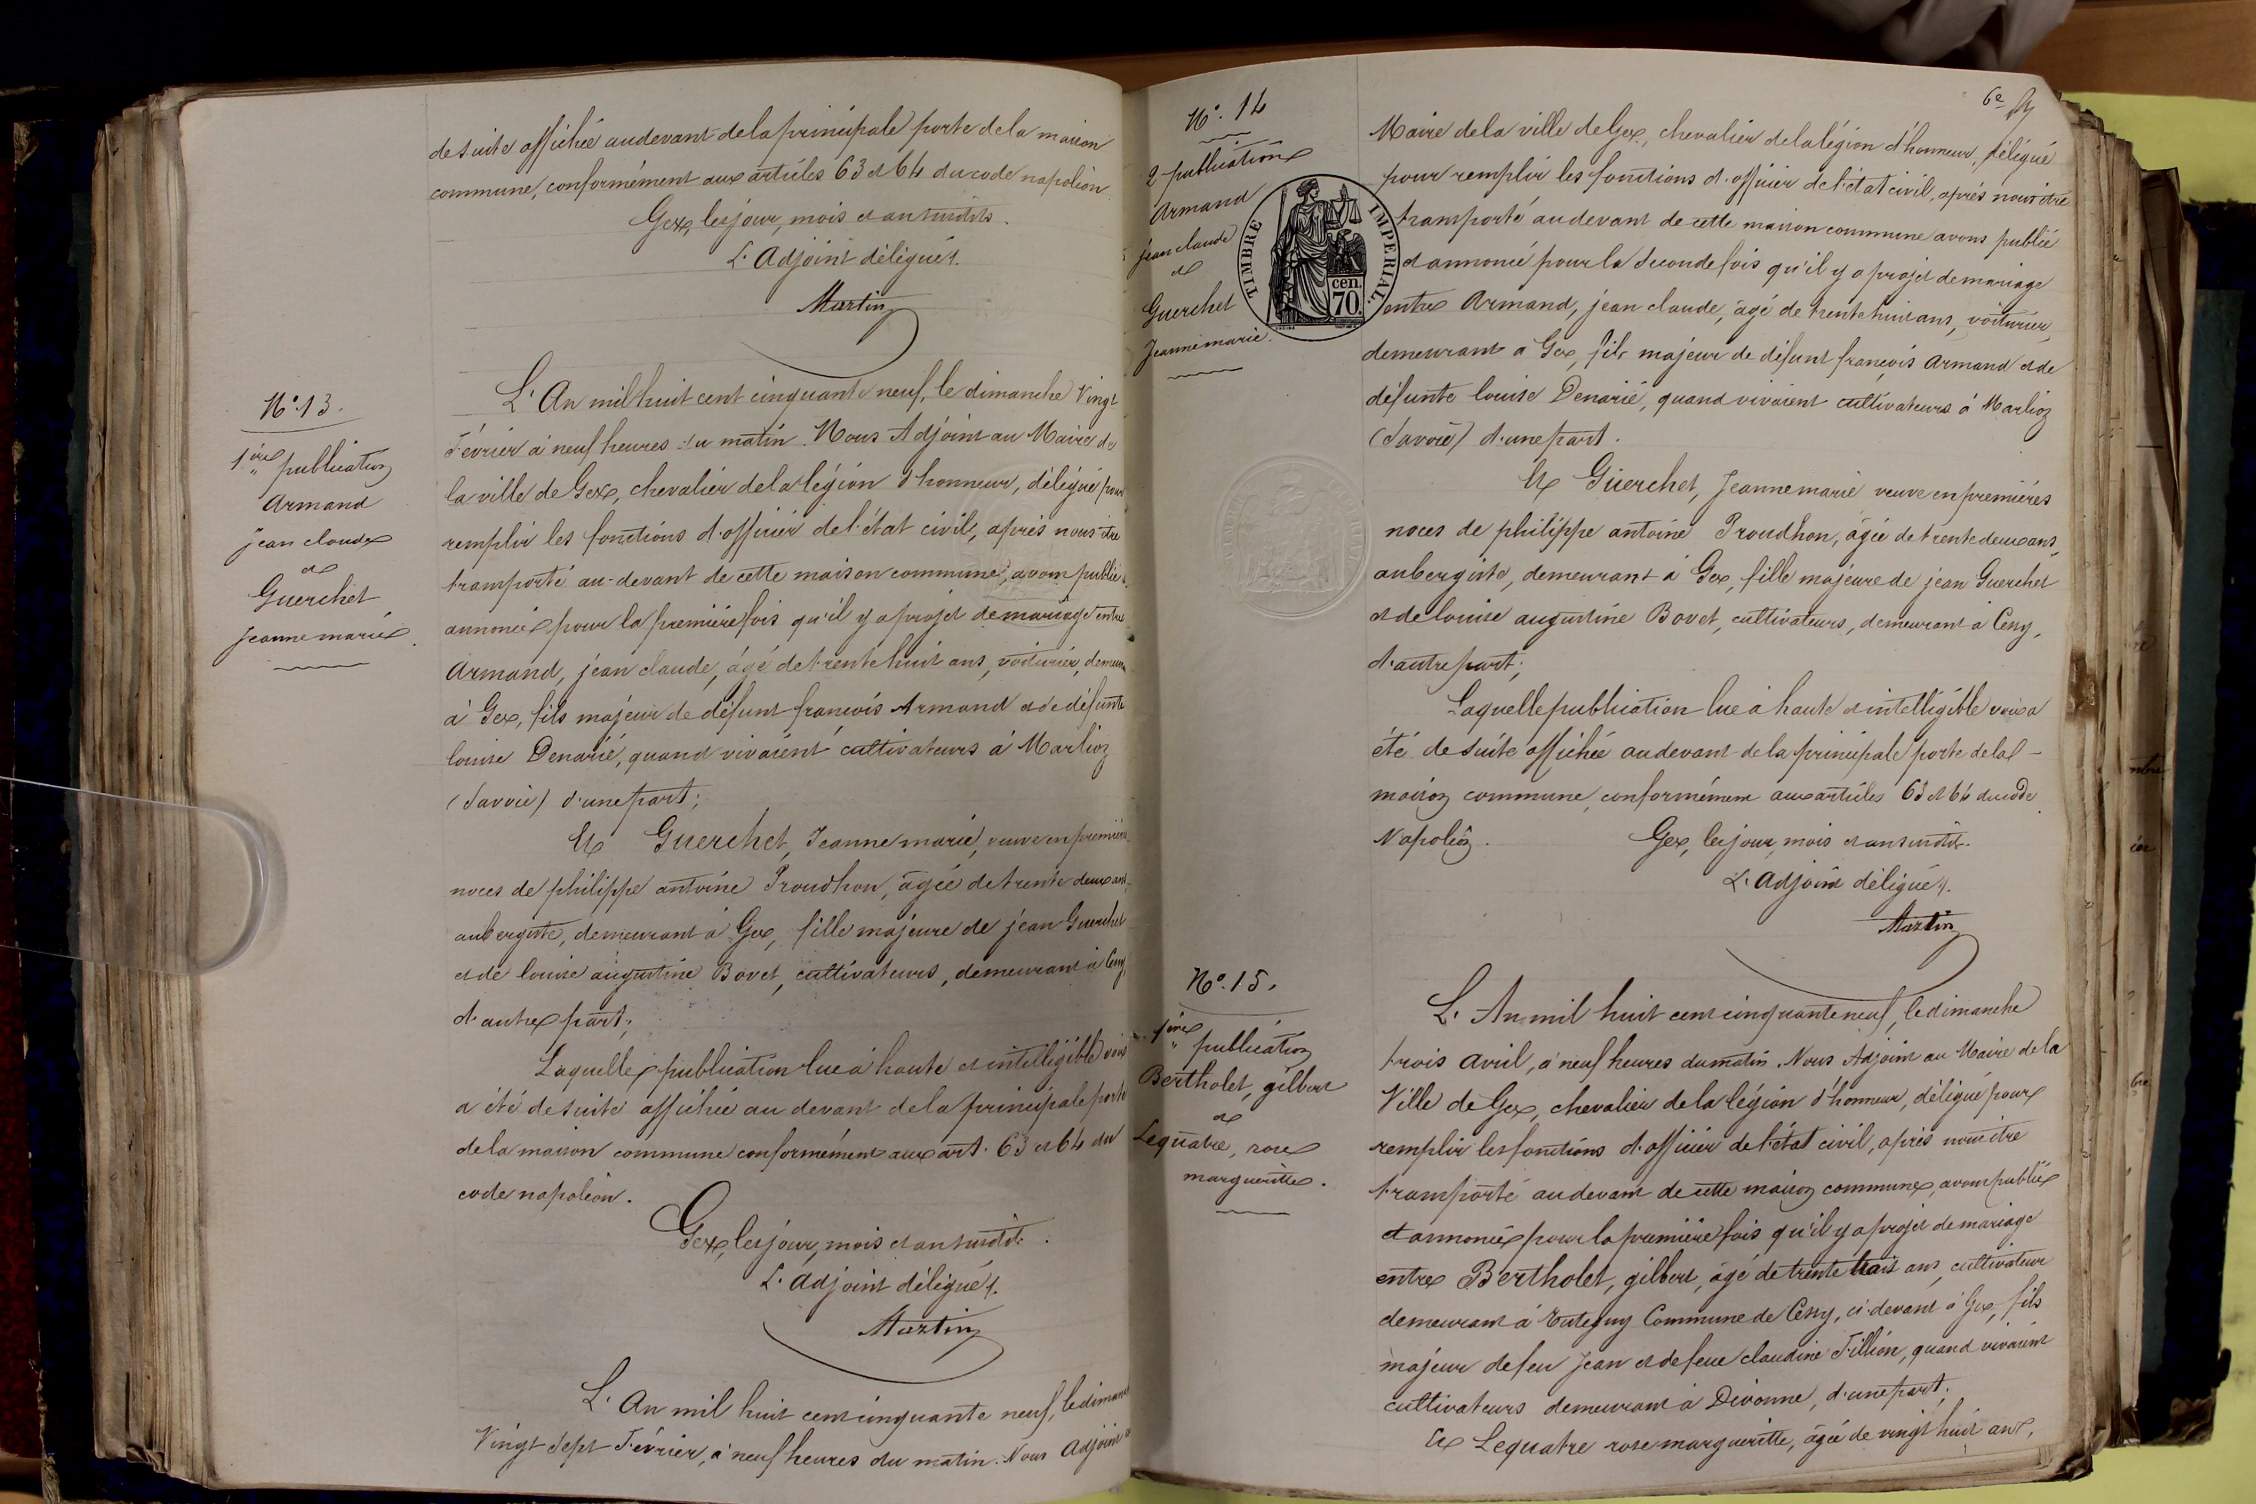 de suite affichée au devant de la principale porte de la maison
commune, conformément aux articles 63 et 64 du code napoléon
Gex, les jour, mois et an susdits.
L'Adjoint délégué.
Martin
N° 13.
1ère publication
Armand
jean claude
et
Guerchet
Jeanne marie.
L'An mil huit cent cinquante neuf, le dimanche Vingt
Février à neuf heures du matin. Nous Adjoint au Maire de
la ville de Gex, chevalier de la légion d'honneur, délégué pour
remplir les fonctions d'officier de l'état civil, après nous être
transporté au-devant de cette maison commune, avons publié &
annoncé pour la première fois qu'il y a projet de mariage entre
Armand, jean claude, âgé de trente huit ans, voiturier, demeura
à Gex, fils majeur de défunt françois Armand et de défunte
louise Denarié, quand vivaient cultivateurs à Marlioz
(Savoie) d'une part;
Et Guerchet, Jeanne marie, veuve en premières
noces de philippe antoine Proudhon, âgée de trente deux ans,
aubergiste, demeurant à Gex, fille majeure de jean Guerchet
et de louise augustine Bovet, cultivateurs, demeurant à Cessy,
d'autre part;
Laquelle publication lue à haute et intelligible voix
a été de suite affichée au devant de la principale porte
de la maison commune conformément aux art. 63 et 64 du
code napoléon.
Gex, les jour, mois et an susdits.
L'adjoint délégué.
Martin
L'An mil huit cent cinquante neuf, le dimanche
Vingt sept Février, à neuf heures du matin. Nous Adjoint au
6e
N° 14
2e publication
Armand
jean claude
et
Guerchet
Jeanne marie.
TIMBRE IMPERIAL.
cen.
70.
Maire de la ville de Gex, chevalier de la légion d'honneur, délégué
pour remplir les fonctions d'officier de l'état civil, après nous être
transporté au devant de cette maison commune avons publié
et annoncé pour la seconde fois qu'il y a projet de mariage
entre Armand, jean claude, âgé de trente huit ans, voiturier,
demeurant à Gex, fils majeur de défunt françois Armand et de
défunte louise Denarié, quand vivaient cultivateurs à Marlioz
(Savoie) d'une part.
Et Guerchet, Jeanne marie veuve en premières
noces de philippe antoine Proudhon, âgée de trente deux ans,
aubergiste, demeurant à Gex, fille majeure de jean Guerchet
et de louise augustine Bovet, cultivateurs, demeurant à Cessy,
d'autre part;
Laquelle publication lue à haute et intelligible voix a
été de suite affichée au devant de la principale porte de la
maison commune, conformément aux articles 63 et 64 du code
Napoléon. Gex, les jour, mois et an susdits.
L'Adjoint délégué.
Martin
N° 15.
1ère publication
Bertholet, gilbert
et
Lequatre, rose
margueritte.
L'An mil huit cent cinquante neuf, le dimanche
trois avril, à neuf heures du matin. Nous Adjoint au Maire de la
Ville de Gex, chevalier de la légion d'honneur, délégué pour
remplir les fonctions d'officier de l'état civil, après nous être
transporté au devant de cette maison commune, avons publié
et annoncé pour la première fois qu'il y a projet de mariage
entre Bertholet, gilbert, âgé de trente trois ans, cultivateur
demeurant à Tutegny Commune de Cessy, ci-devant à Gex, fils
majeur de feu Jean et de feue claudine Fillion, quand vivaient
cultivateurs demeurant à Divonne, d'une part;
Et Lequatre rose margueritte, âgée de vingt huit ans,